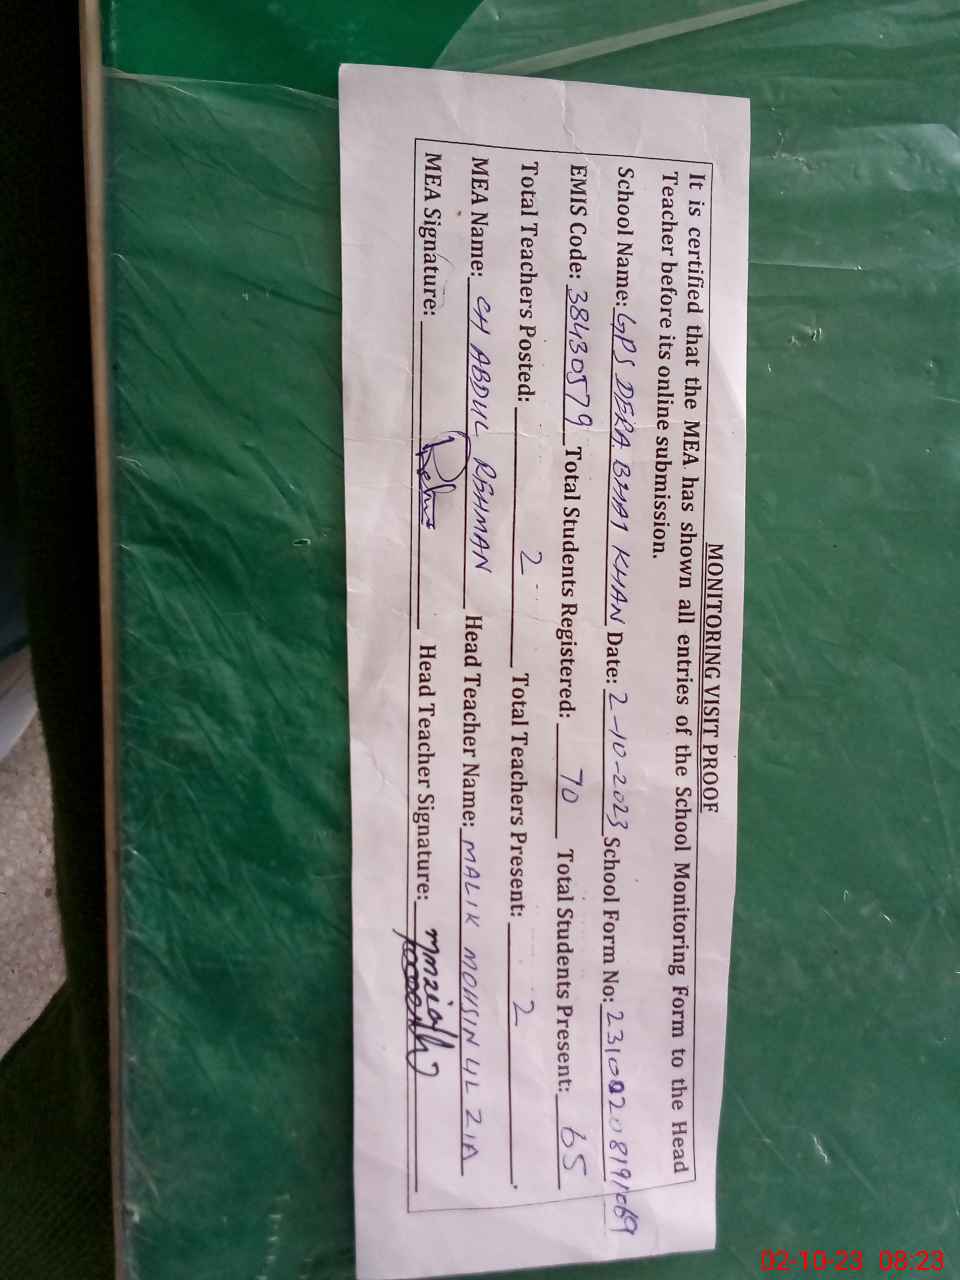 MONITORING VISIT PROOF
It is certified that the MEA has shown all entries of the School Monitoring Form to the Head
Teacher before its online submission.
School Name: GPS DERA BHAI KHAN Date: 2-10-2023 School Form No:
EMIS Code: 38430579 Total Students Registered: 70 Total Students Present: 65
Total Teachers Posted: 2 Total Teachers Present: 2
MEA Name: CH ABDUL REHMAN Head Teacher Name: MALIK MOHSIN UL ZIA
MEA Signature: Head Teacher Signature:
02-10-23 08:23